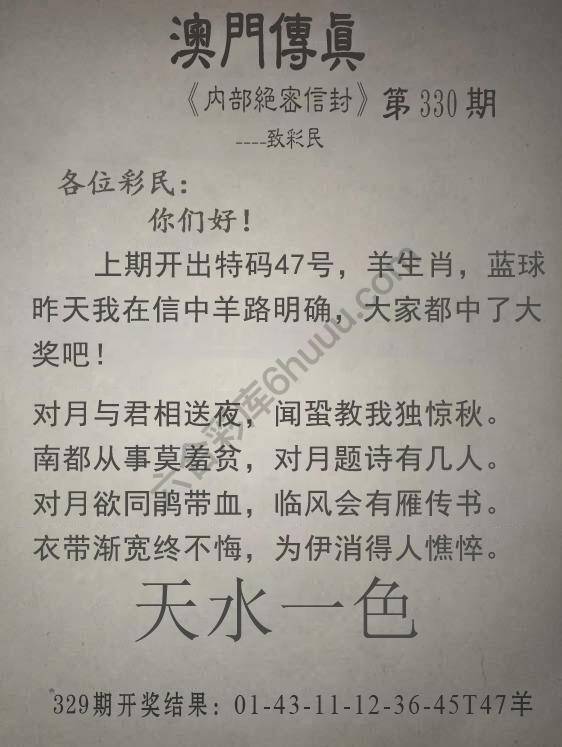 澳門傳眞
《内部絕密信封》第330期
----致彩民
各位彩民：
你们好！
上期开出特码47号，羊生肖，蓝球
昨天我在信中羊路明确，大家都中了大
奖吧！
对月与君相送夜，闻蛩教我独惊秋。
南都从事莫羞贫，对月题诗有几人。
对月欲同鹃带血，临风会有雁传书。
衣带渐宽终不悔，为伊消得人憔悴。
天水一色
329期开奖结果：01-43-11-12-36-45T47羊
六合彩库6huuu.com